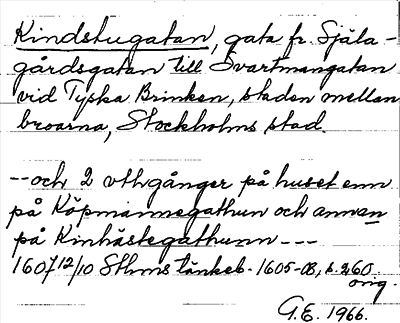 Kindstugatan, gata fr. Själa-
gårdsgatan till Svartmangatan
vid Tyska Brinken, staden mellan
broarna, Stockholms stad.
--och 2 vthgånger på huset enn
på Köpmannegathun och annan
på Kinhästegathunn ---
1607 12/10 Sthms tänkeb. 1605-08, s. 260
orig.
G.E. 1966.